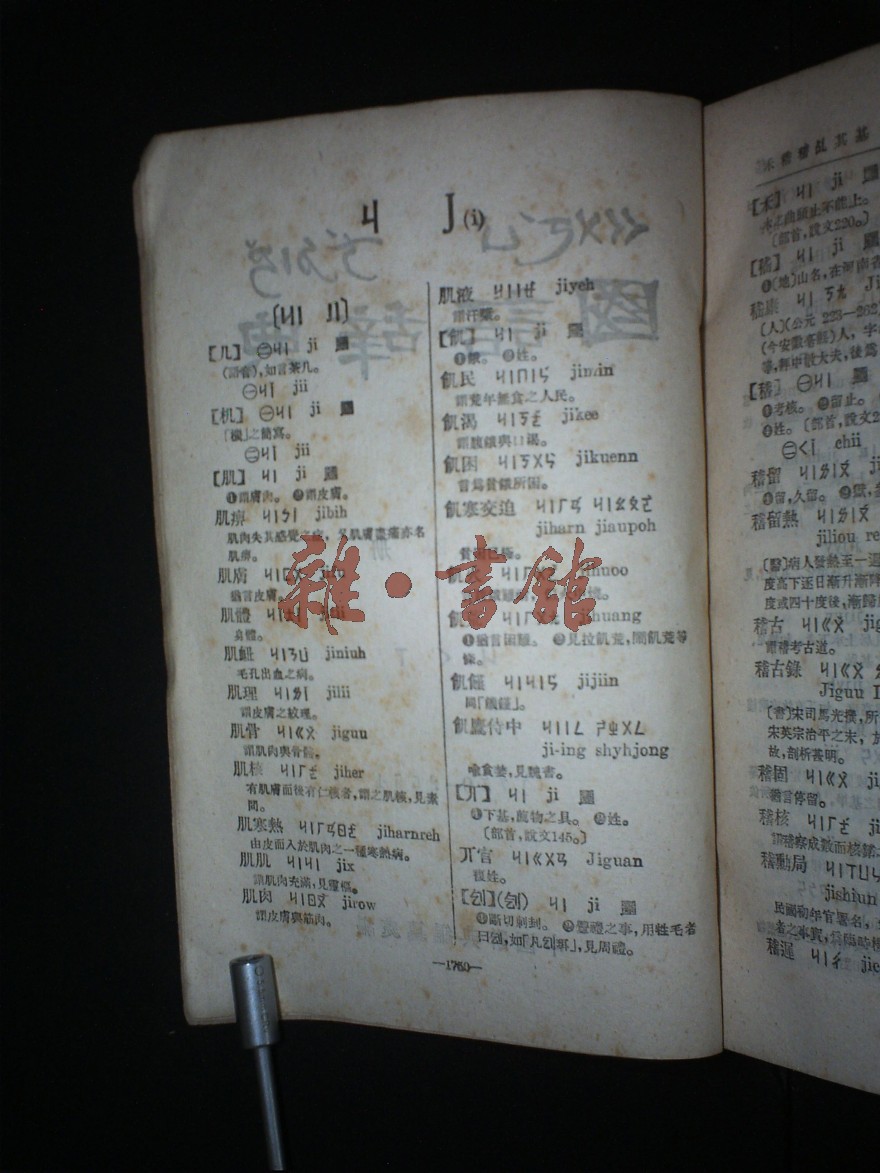 ㄐ J(i)
〔ㄐㄧ Ji〕
[几] ㊀ㄐㄧ ji
(語音),如言茶几。
㊁ㄐㄧ jii
[机] ㊀ㄐㄧ ji
「機」之簡寫。
㊁ㄐㄧ jii
[肌] ㄐㄧ ji
❶謂膚肉。 ❷謂皮膚。
肌痹 ㄐㄧㄅㄧ jibih
肌肉失其感覺之病,又肌膚盡痛亦名
肌痹。
肌膚 ㄐㄧㄈㄨ
猶言皮膚。
肌體 ㄐㄧㄊㄧ
身體。
肌衄 ㄐㄧㄋㄩ jiniuh
毛孔出血之病。
肌理 ㄐㄧㄌㄧ jilii
謂皮膚之紋理。
肌骨 ㄐㄧㄍㄨ jiguu
謂肌肉與骨骼。
肌核 ㄐㄧㄏㄜ jiher
有肌膚而後有仁核者,謂之肌核,見素
問。
肌寒熱 ㄐㄧㄏㄢㄖㄜ jiharnreh
由皮而入於肌肉之一種寒熱病。
肌肌 ㄐㄧㄐㄧ jix
謂肌肉充滿,見靈樞。
肌肉 ㄐㄧㄖㄡ jirow
謂皮膚與筋肉。
肌液 ㄐㄧㄧㄝ jiyeh
謂汗液。
[飢] ㄐㄧ ji
❶餓。 ❷姓。
飢民 ㄐㄧㄇㄧㄣ jimin
謂荒年無食之人民。
飢渴 ㄐㄧㄎㄜ jikee
謂腹餓與口渴。
飢困 ㄐㄧㄎㄨㄣ jikuenn
言為貧餓所困。
飢寒交迫 ㄐㄧㄏㄢ ㄐㄧㄠㄆㄛ
jiharn jiaupoh
飢
飢 jihuang
❶猶言困難。 ❷見拉飢荒,鬧飢荒等
條。
飢饉 ㄐㄧㄐㄧㄣ jijiin
同「饑饉」。
飢鷹侍中 ㄐㄧㄧㄥ ㄕㄓㄨㄥ
ji-ing shyhjong
喻貪婪,見魏書。
[丌] ㄐㄧ ji
❶下基,薦物之具。 ❷姓。
〔部首,說文145。〕
丌官 ㄐㄧㄍㄨㄢ Jiguan
複姓。
[刉](刏) ㄐㄧ ji
❶斷切刺封。 ❷釁禮之事,用牲毛者
曰刉,如「凡刉珥」,見周禮。
—1760—
禾 稽 嵇 乩 其 基
[禾] ㄐㄧ ji
木之曲頭止不能上。
〔部首,說文220。〕
[嵇] ㄐㄧ ji
❶(地)山名,在河南省
嵇康 ㄐㄧ ㄎㄤ Ji
(人)(公元 223—262)
(今安徽省縣)人,字
等,拜中散大夫,後為
[稽] ㊀ㄐㄧ ji
❶考核。 ❷留止。
❹姓。 〔部首,說文2
㊁ㄑㄧ chii
稽留 ㄐㄧㄌㄧㄡ
稽留熱 ㄐㄧㄌㄧㄡ
jiliou re
(醫)病人發熱至一週
度高下逐日漸升漸降
度或四十度後,漸歸
稽古 ㄐㄧㄍㄨ jig
謂稽考古道。
稽古錄 ㄐㄧㄍㄨ
Jiguu L
(書)宋司馬光撰,所
宋英宗治平之末,
故,剖析甚明。
稽固 ㄐㄧㄍㄨ ji
猶言停留。
稽核 ㄐㄧㄏㄜ ji
稽勳局 ㄐㄧㄒㄩㄣ
jishiun
民國初年官署名,
稽遲 ㄐㄧㄔ jic
國語辭典
雜·書館